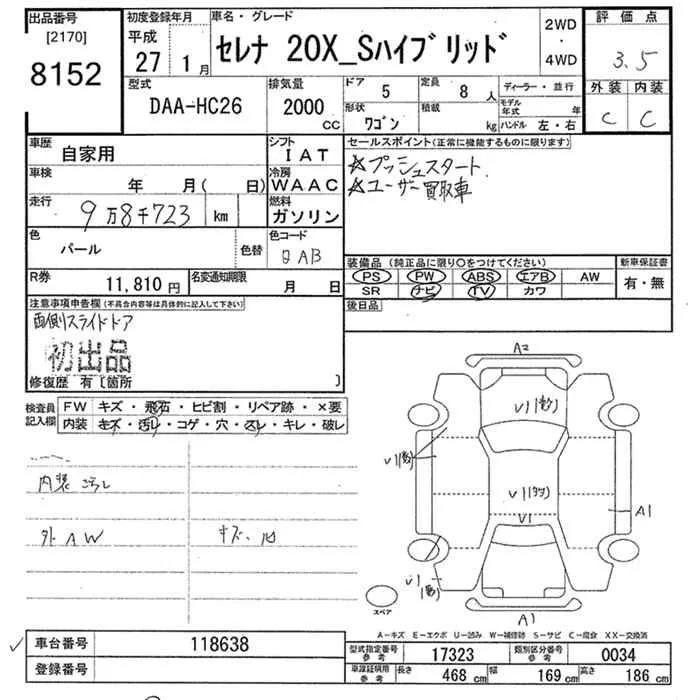 出品番号
[2170]
8152
初度登録年月
平成
27年 1月
車名・グレード
セレナ 20X_Sハイブリッド
2WD
・
4WD
評価点
3.5
外装 内装
C C
型式
DAA-HC26
排気量
2000
CC
ドア
5
定員
8人
形状
ワゴン
積載
kg
ディーラー・並行
モデル年式 年
ハンドル 左・右
車歴
自家用
シフト
IAT
車検
年 月( 日)
冷房
WAAC
走行
9万8千723 km
燃料
ガソリン
色
パール
色替
色コード
QAB
R券
11,810円
名変通知期限
月 日
セールスポイント(正常に機能するものに限ります)
☆プッシュスタート
☆ユーザー買取車
装備品 (純正品に限り○をつけてください)
PS PW ABS エアB AW
SR ナビ TV カワ
新車保証書
有・無
後日品
注意事項申告欄(不具合内容等は具体的に記入して下さい)
両側スライドドア
初出品
修復歴 有〔箇所 〕
検査員
記入欄
FW キズ・飛石・ヒビ割・リペア跡・×要
内装 キズ・汚レ・コゲ・穴・スレ・キレ・破レ
内装
外 AW
キズ・凹
A2
V1
V1
V1
V1
V1
A1
A1
スペア
A-キズ E-エクボ U-凹み W-補修跡 S-サビ C-腐食 XX-交換済
車台番号 118638
登録番号
型式指定番号
参考
17323
類別区分番号
参考
0034
車庫証明用
参考
長さ 468cm 幅 169cm 高さ 186cm